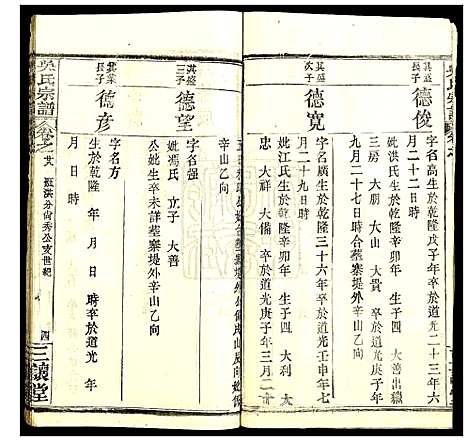 其盛長子
德俊
字名高生於乾隆戊子年
卒於道光二十三年六
月二十二日
妣洪氏生於乾隆
生子四
大善出繼
三房
大朋
大山
大貴
卒於道光庚子年
九月二十七日時合葬寨堤外辛山乙向
其盛次子
德寬
字名廣生於乾隆三十六年
卒於道光壬申年七
月二十九日時
妣江氏生於乾隆辛卯年
生子四
大利
大忠
大祥
大備
卒於道光庚子年三月二十
辛山乙向
其盛三子
德望
字名强
妣馮氏
立子
大善
公妣生卒未詳葬寨堤外辛山乙向
長子
德彦
字名方
生於乾隆
年
月
日
時
卒於道光
年
月
日
時
吳氏宗譜
卷之廿
洪分尚秀公支世紀
四
三讓堂